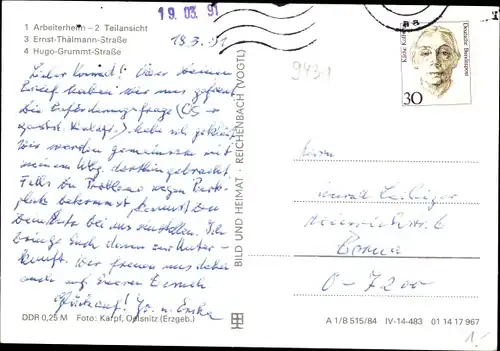 19.03.91
1 Arbeiterheim – 2 Teilansicht
3 Ernst-Thälmann-Straße
4 Hugo-Grummt-Straße
18.3.91
Lieber Konrad! Über Deinen
Brief haben wir uns gefreut
Die Beförderungsfrage (
habe ich geklärt
Wir werden gemeinsam mit
meinem Wbg. dorthin gebracht.
Falls Du Probleme wegen Park-
platz bekommst, kannst Du
Dein Auto bei uns einstellen. Ich
bringe Euch dann zur Unter-
kunft. Wir freuen uns daher
auch auf Eueren Besuch
Glückauf!
DDR 0,25 M Foto: Karpf, Oelsnitz (Erzgeb.)
BILD UND HEIMAT · REICHENBACH (VOGTL)
9431
Käthe Kollwitz
Deutsche Bundespost
30
Herrn
Konrad
Heinrichstr. 6
Borna
O-7200
A 1/B 515/84 IV-14-483 01 14 17 967
1,-